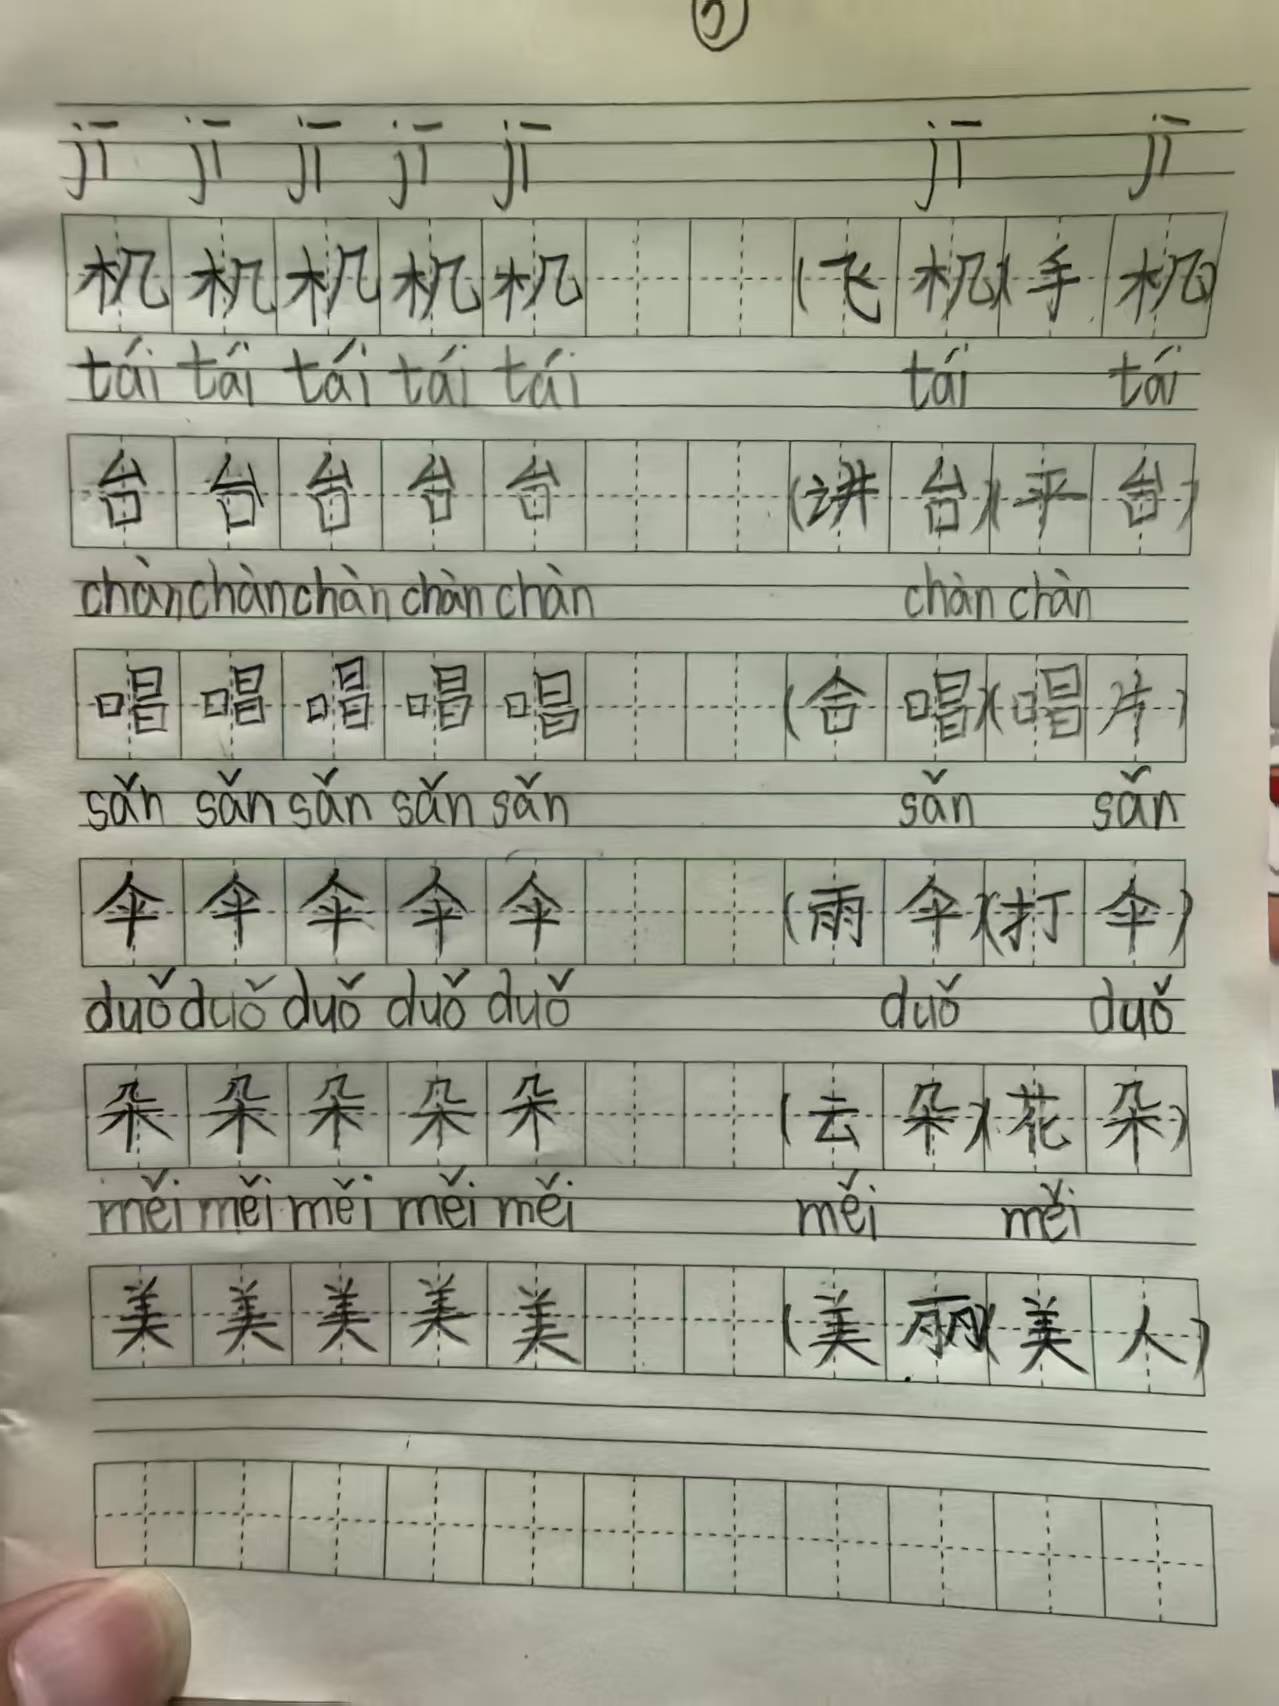 jī jī jī jī jī jī jī
机 机 机 机 机 (飞 机)(手 机)
tái tái tái tái tái tái tái
台 台 台 台 台 (讲 台)(平 台)
chàn chàn chàn chàn chàn chàn chàn
唱 唱 唱 唱 唱 (合 唱)(唱 片)
sǎn sǎn sǎn sǎn sǎn sǎn sǎn
伞 伞 伞 伞 伞 (雨 伞)(打 伞)
duǒ duǒ duǒ duǒ duǒ duǒ duǒ
朵 朵 朵 朵 朵 (云 朵)(花 朵)
měi měi měi měi měi měi měi
美 美 美 美 美 (美 丽)(美 人)